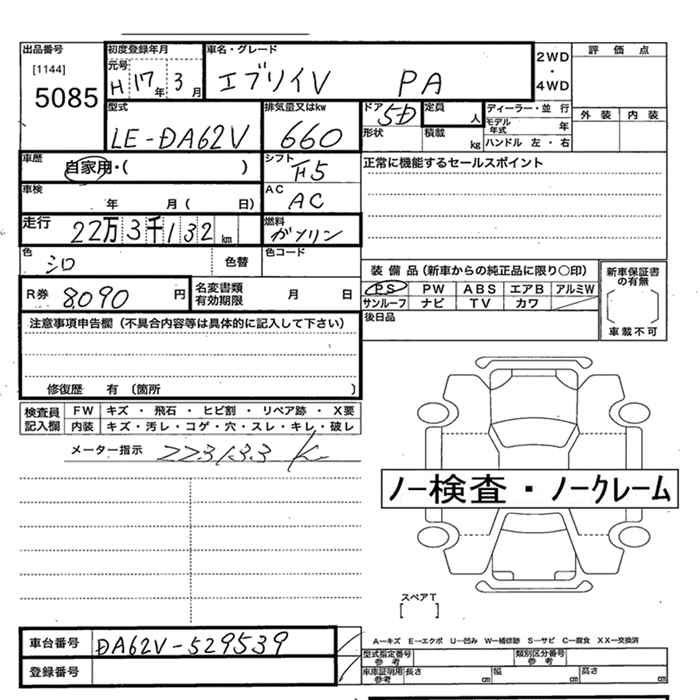 出品番号 初度登録年月 車名・グレード 評価点
[1144] 元号 2WD
5085 H 17年 3月 エブリイV PA ・
4WD
型式 排気量又はkw ドア 5D 定員 人 ディーラー・並行 外装 内装
LE-DA62V 660 形状 積載 kg モデル年式 年
ハンドル 左・右
車歴 自家用・( ) シフト F5 正常に機能するセールスポイント
車検 年 月( 日) AC AC
走行 22万3千132km 燃料 ガソリン
色 シロ 色替 色コード
装備品(新車からの純正品に限り○印) 新車保証書の有無
R券 8090円 名変書類有効期限 月 日 PS PW ABS エアB アルミW
サンルーフ ナビ TV カワ
後日品 車載不可
注意事項申告欄(不具合内容等は具体的に記入して下さい)
修復歴 有 (箇所 )
検査員記入欄 FW キズ・飛石・ヒビ割・リペア跡・X要
内装 キズ・汚レ・コゲ・穴・スレ・キレ・破レ
メーター指示 223133 K
ノー検査・ノークレーム
スペアT
[ ]
車台番号 DA62V-529539 A−キズ E−エクボ U−凹み W−補修跡 S−サビ C−腐食 XX−交換済
型式指定番号参考 類別区分番号参考
登録番号 車庫証明用参考 長さ cm 幅 cm 高さ cm